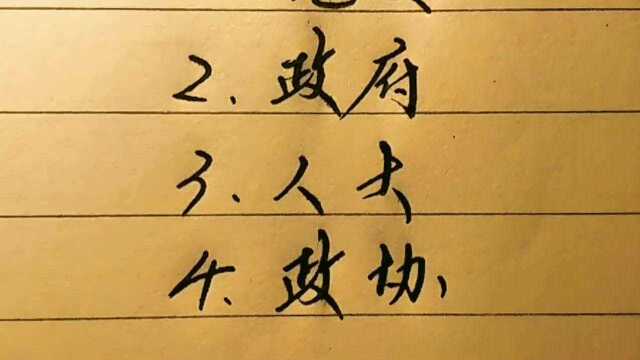 2. 政府
3. 人大
4. 政协